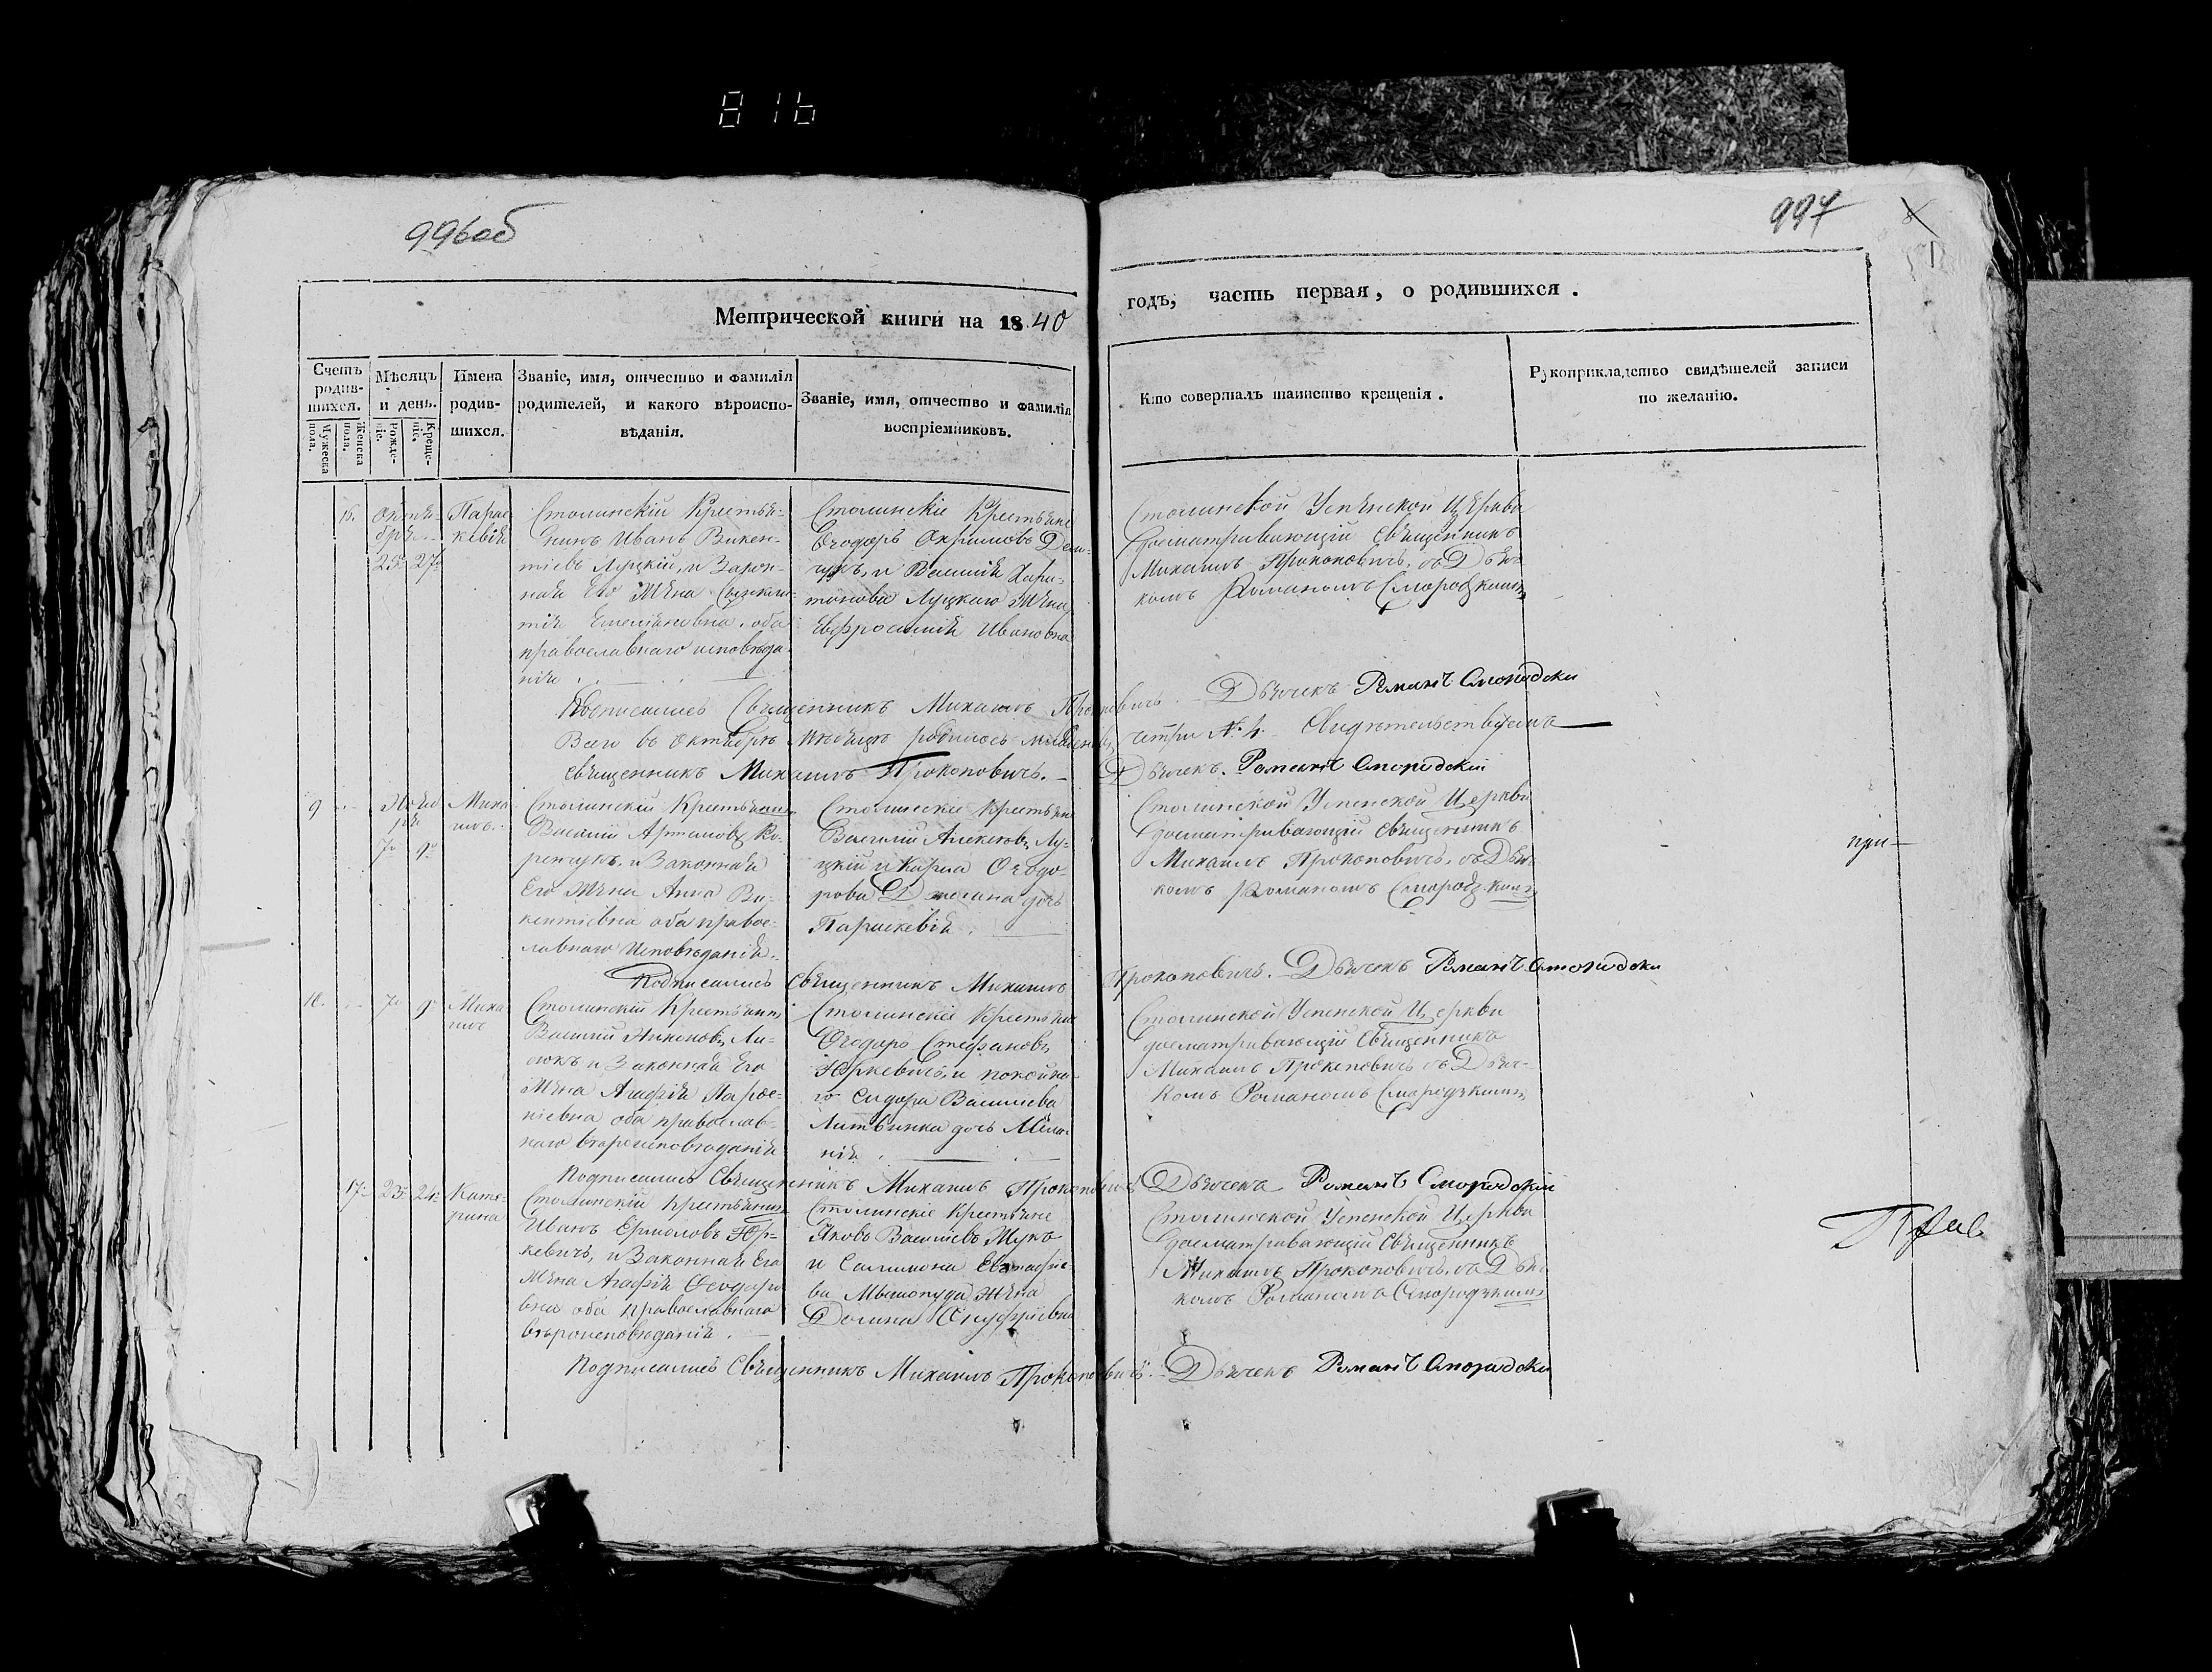 816
996об
997
Метрической книги на 1840
годъ, часть первая, о родившихся.
Счетъ родив-шихся.
Мужеска пола.
Женска пола.
Мѣсяцъ и день.
Рожде-ніе.
Креще-ніе.
Имена родив-шихся.
Званіе, имя, отчество и фамилія
родителей, и какого вѣроиспо-
вѣданія.
Званіе, имя, отчество и фамилія
воспріемниковъ.
Кто совершалъ таинство крещенія.
Рукоприкладство свидѣтелей записи
по желанію.
Октя-
бря
25 27
Парас-
кевія
Столинскій Крестья-
нинъ Иванъ Викен-
тіевъ Луцкій, и Закон-
ная Его Жена
Емеліановна, оба
православнаго исповѣда-
нія.
Столинскіе Крестьяне
Ѳеодоръ
и Василія Хари-
тонова Луцкаго Жена
Евфросинія Ивановна
Столинской Успенской Церкви
досматривающій Священникъ
Михаилъ Прокоповичь, съ Дьяч-
комъ Романомъ Смородскимъ
Подписались Священникъ Михаилъ Прокоповичь. Дьячекъ Романъ Смородски
Всего въ Октябрѣ Мѣсяцѣ родилось четыри № 4.
Священникъ Михаилъ Прокоповичь. Дьячекъ Романъ Смородскій
9
Ноя-
бря
7 9
Миха-
илъ.
Столинскій Крестьянинъ
Василій Артемовъ Ко-
ренчукъ, и Законная
Его Жена Анна Ви-
кентіевна оба правос-
лавнаго Исповѣданія.
Столинскіе Крестьяне
Василій Алексѣевъ Лу-
цкій и Карпа Ѳеодо-
рова дочь
Параскевія.
Столинской Успенской Церкви
досматривающій Священникъ
Михаилъ Прокоповичь, съ Дьяч-
комъ Романомъ Смородскимъ
при-
Подписались Священникъ Михаилъ Прокоповичь. Дьячекъ Романъ Смородски
10.
7 9
Миха-
илъ
Столинскій Крестьянинъ
Василій
и Законная Его
Жена Агафія
оба православ-
наго вѣроисповѣданія
Столинскіе Крестьяне
Ѳеодоръ Стефановъ
Юркевичь, и покойна-
го Сидора Василіева
Литвинка дочь Мела-
нія.
Столинской Успенской Церкви
досматривающій Священникъ
Михаилъ Прокоповичь съ Дьяч-
комъ Романомъ Смородскимъ
Подписались Священникъ Михаилъ Прокоповичь Дьячекъ Романъ Смородскій
17
23 24
Кате-
рина
Столинскій Крестьянинъ
Иванъ Ермоловъ Юр-
кевичь, и Законная Его
Жена Агафія Ѳеодоро-
вна оба Православнаго
вѣроисповѣданія.
Столинскіе Крестьяне
Яковъ Василіевъ Жукъ
и
Жена
Домна Онуфріевна
Столинской Успенской Церкви
досматривающій Священникъ
Михаилъ Прокоповичь, съ Дьяч-
комъ Романомъ Смородскимъ
Подписались Священникъ Михаилъ Прокоповичь. Дьячекъ Романъ Смородски